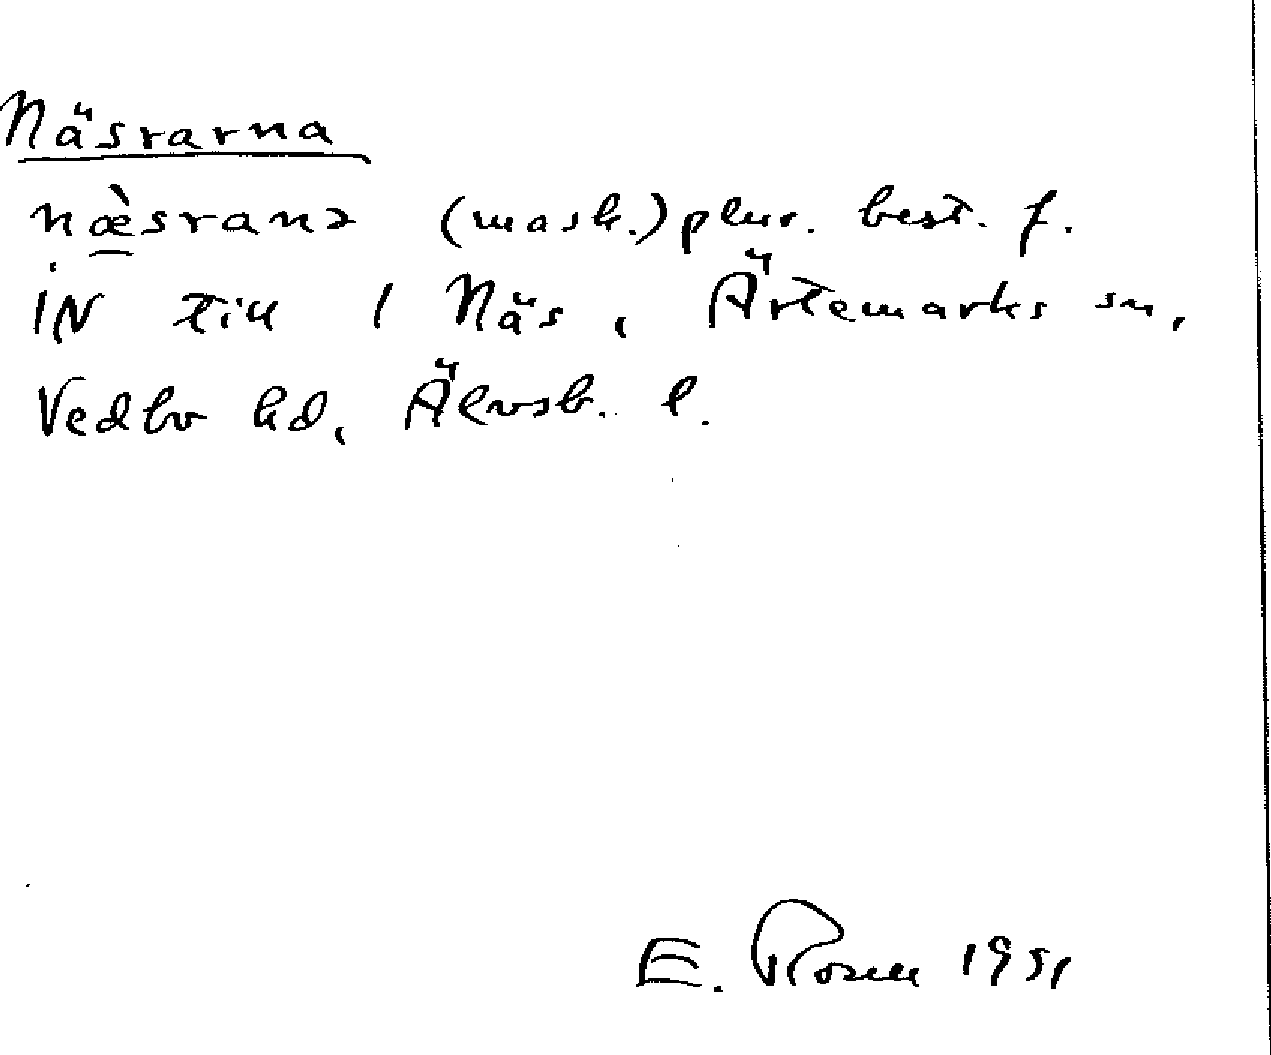 Näsrarna
næ̀sranɔ (mask.) plur. best. f.
IN till 1 Näs, Ärtemarks sn,
Vedbo hd, Älvsb. l.
E. Rosell 1951